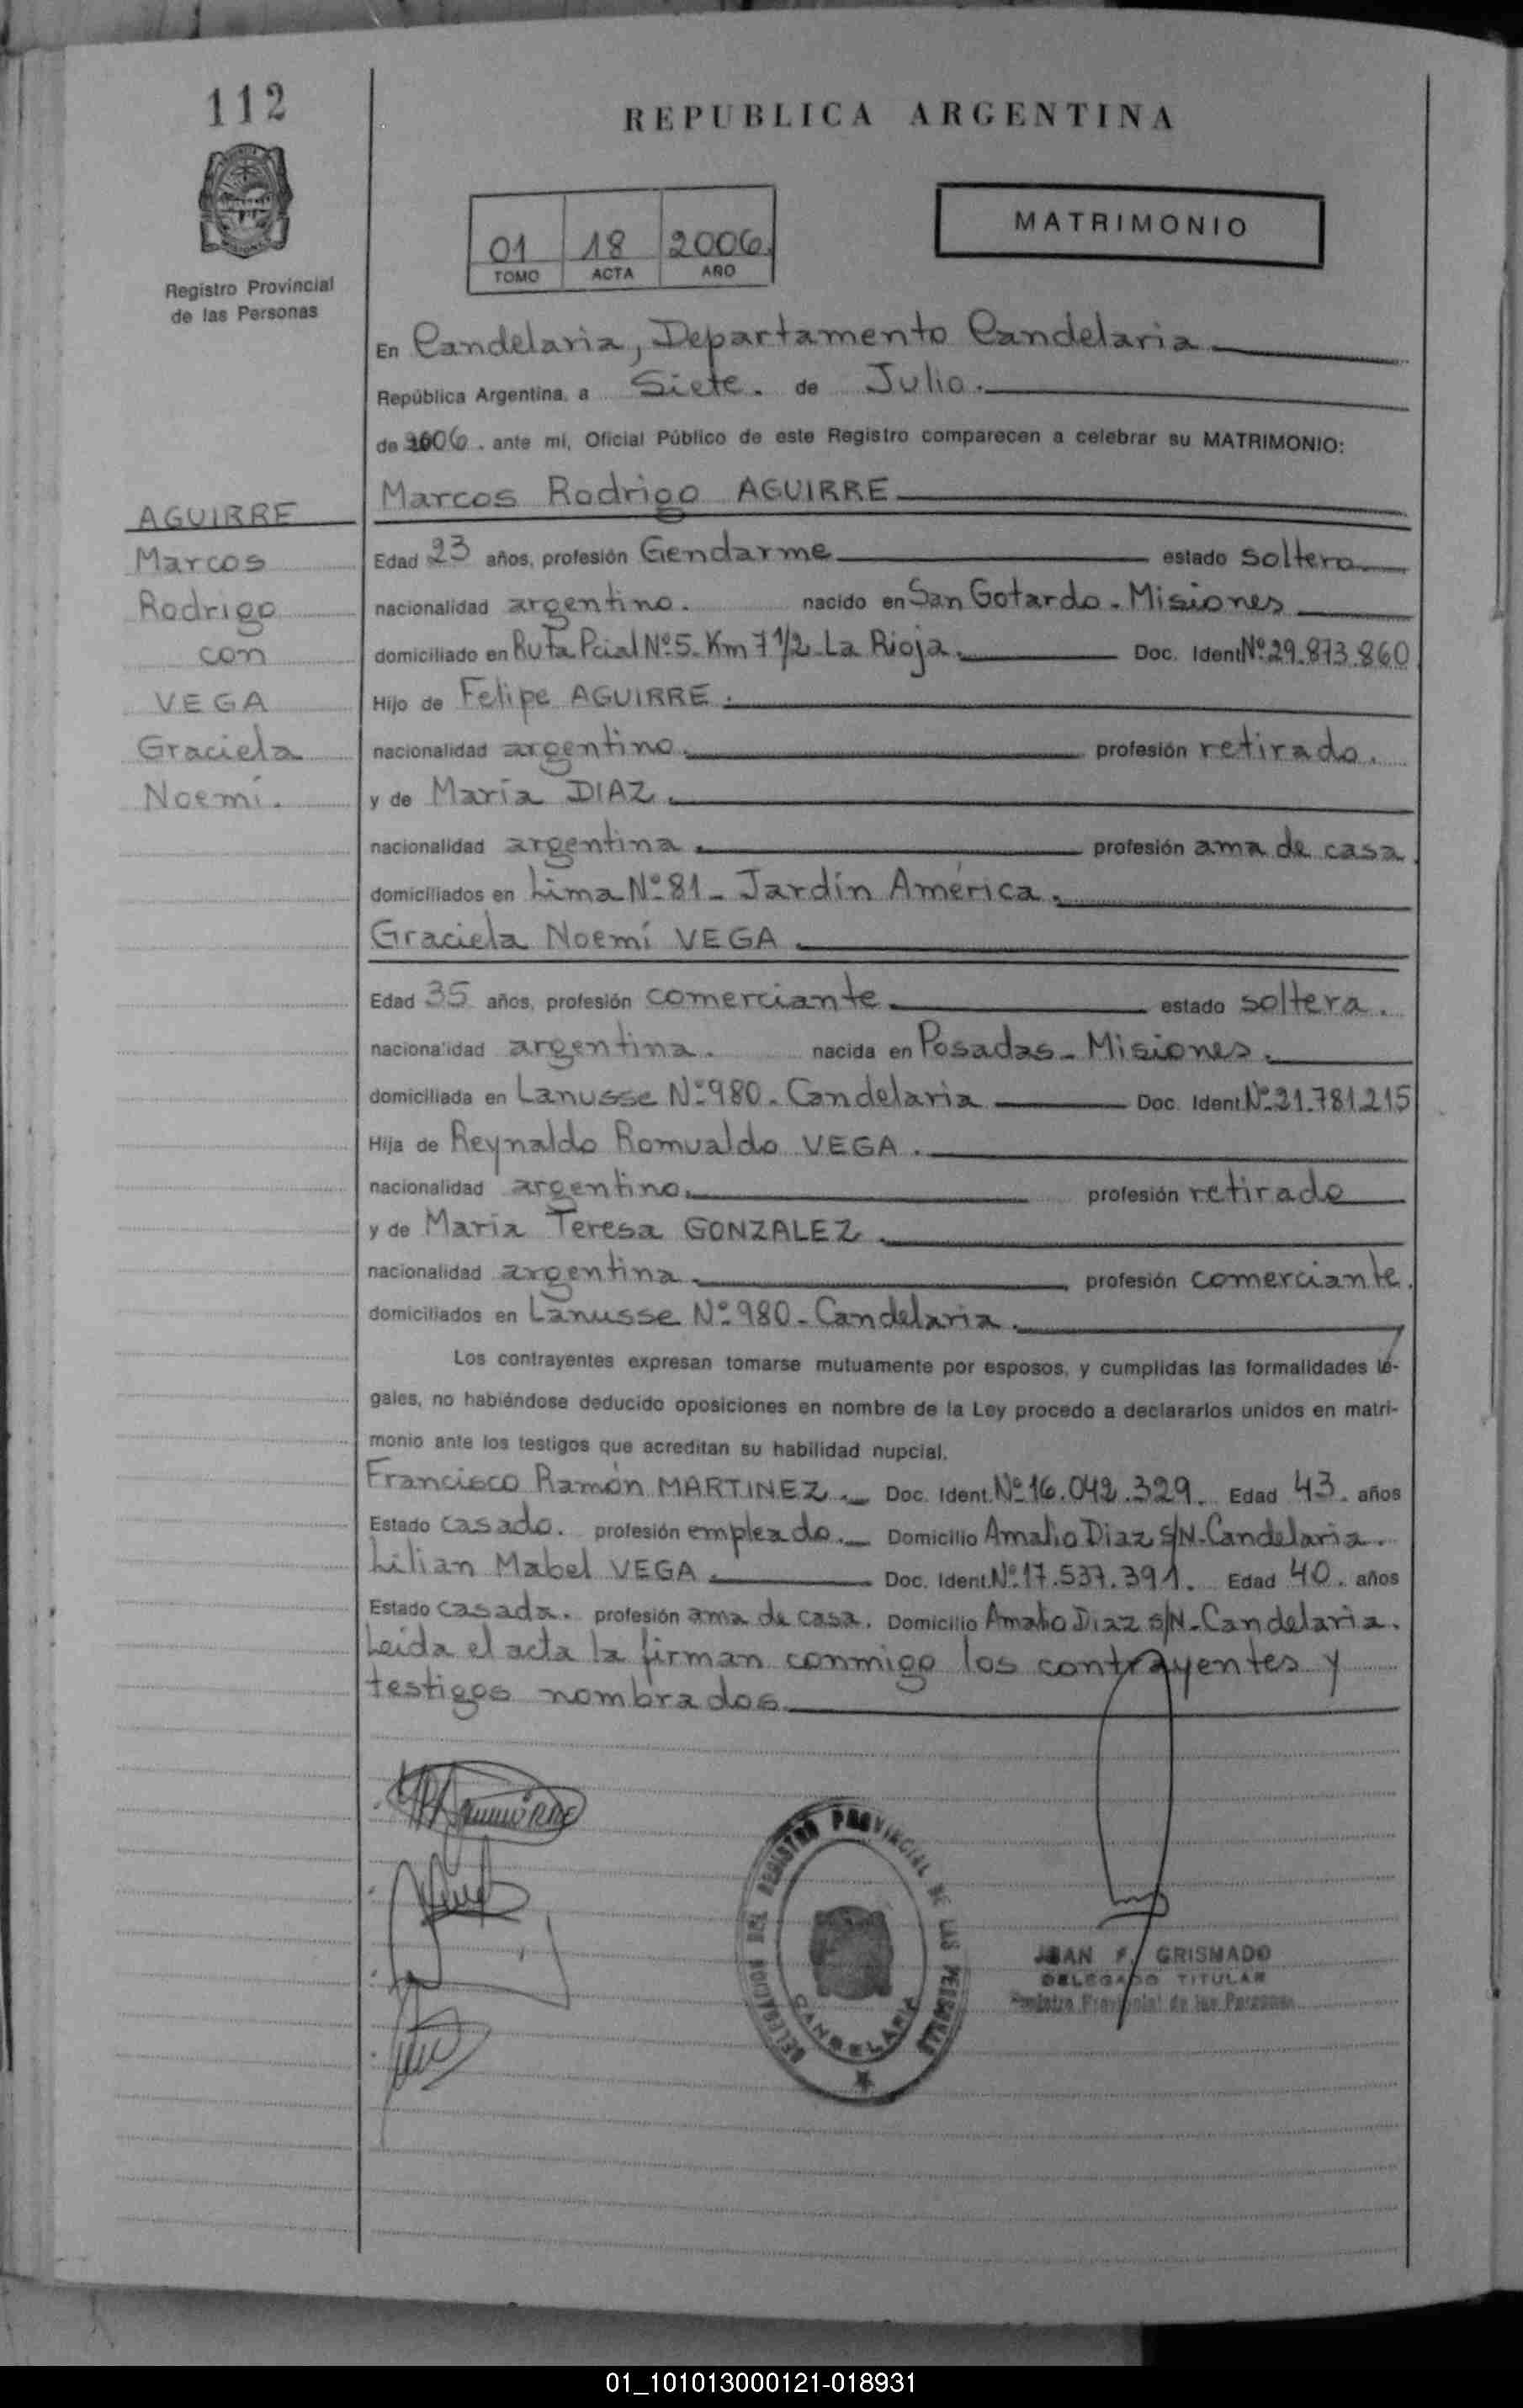 112
REPUBLICA ARGENTINA
01 18 2006
TOMO ACTA AÑO
MATRIMONIO
Registro Provincial
de las Personas
En Candelaria, Departamento Candelaria
República Argentina, a Siete. de Julio.
de 2006. ante mí, Oficial Público de este Registro comparecen a celebrar su MATRIMONIO:
Marcos Rodrigo AGUIRRE
AGUIRRE
Marcos
Rodrigo
con
VEGA
Graciela
Noemí.
Edad 23 años, profesión Gendarme estado soltero
nacionalidad argentino. nacido en San Gotardo - Misiones
domiciliado en Ruta Pcial Nº 5. Km 7 1/2 La Rioja. Doc. Ident Nº 29.873.860
Hijo de Felipe AGUIRRE.
nacionalidad argentino. profesión retirado.
y de María DIAZ.
nacionalidad argentina. profesión ama de casa.
domiciliados en Lima Nº 81 - Jardín América.
Graciela Noemí VEGA.
Edad 35 años, profesión comerciante. estado soltera.
nacionalidad argentina. nacida en Posadas - Misiones.
domiciliada en Lanusse Nº 980. Candelaria Doc. Ident Nº 21.781.215
Hija de Reynaldo Romualdo VEGA.
nacionalidad argentino. profesión retirado
y de María Teresa GONZALEZ.
nacionalidad argentina. profesión comerciante.
domiciliados en Lanusse Nº 980 - Candelaria.
Los contrayentes expresan tomarse mutuamente por esposos, y cumplidas las formalidades le-
gales, no habiéndose deducido oposiciones en nombre de la Ley procedo a declararlos unidos en matri-
monio ante los testigos que acreditan su habilidad nupcial.
Francisco Ramón MARTINEZ. Doc. Ident. Nº 16.042.329. Edad 43. años
Estado casado. profesión empleado. Domicilio Amalio Diaz S/N - Candelaria.
Lilian Mabel VEGA. Doc. Ident. Nº 17.537.391. Edad 40. años
Estado casada. profesión ama de casa. Domicilio Amalio Diaz S/N - Candelaria.
Leida el acta la firman conmigo los contrayentes y
testigos nombrados
DELEGACION DEL REGISTRO PROVINCIAL DE LAS PERSONAS
CANDELARIA
JUAN F. GRISMADO
DELEGADO TITULAR
Registro Provincial de las Personas
01_101013000121-018931